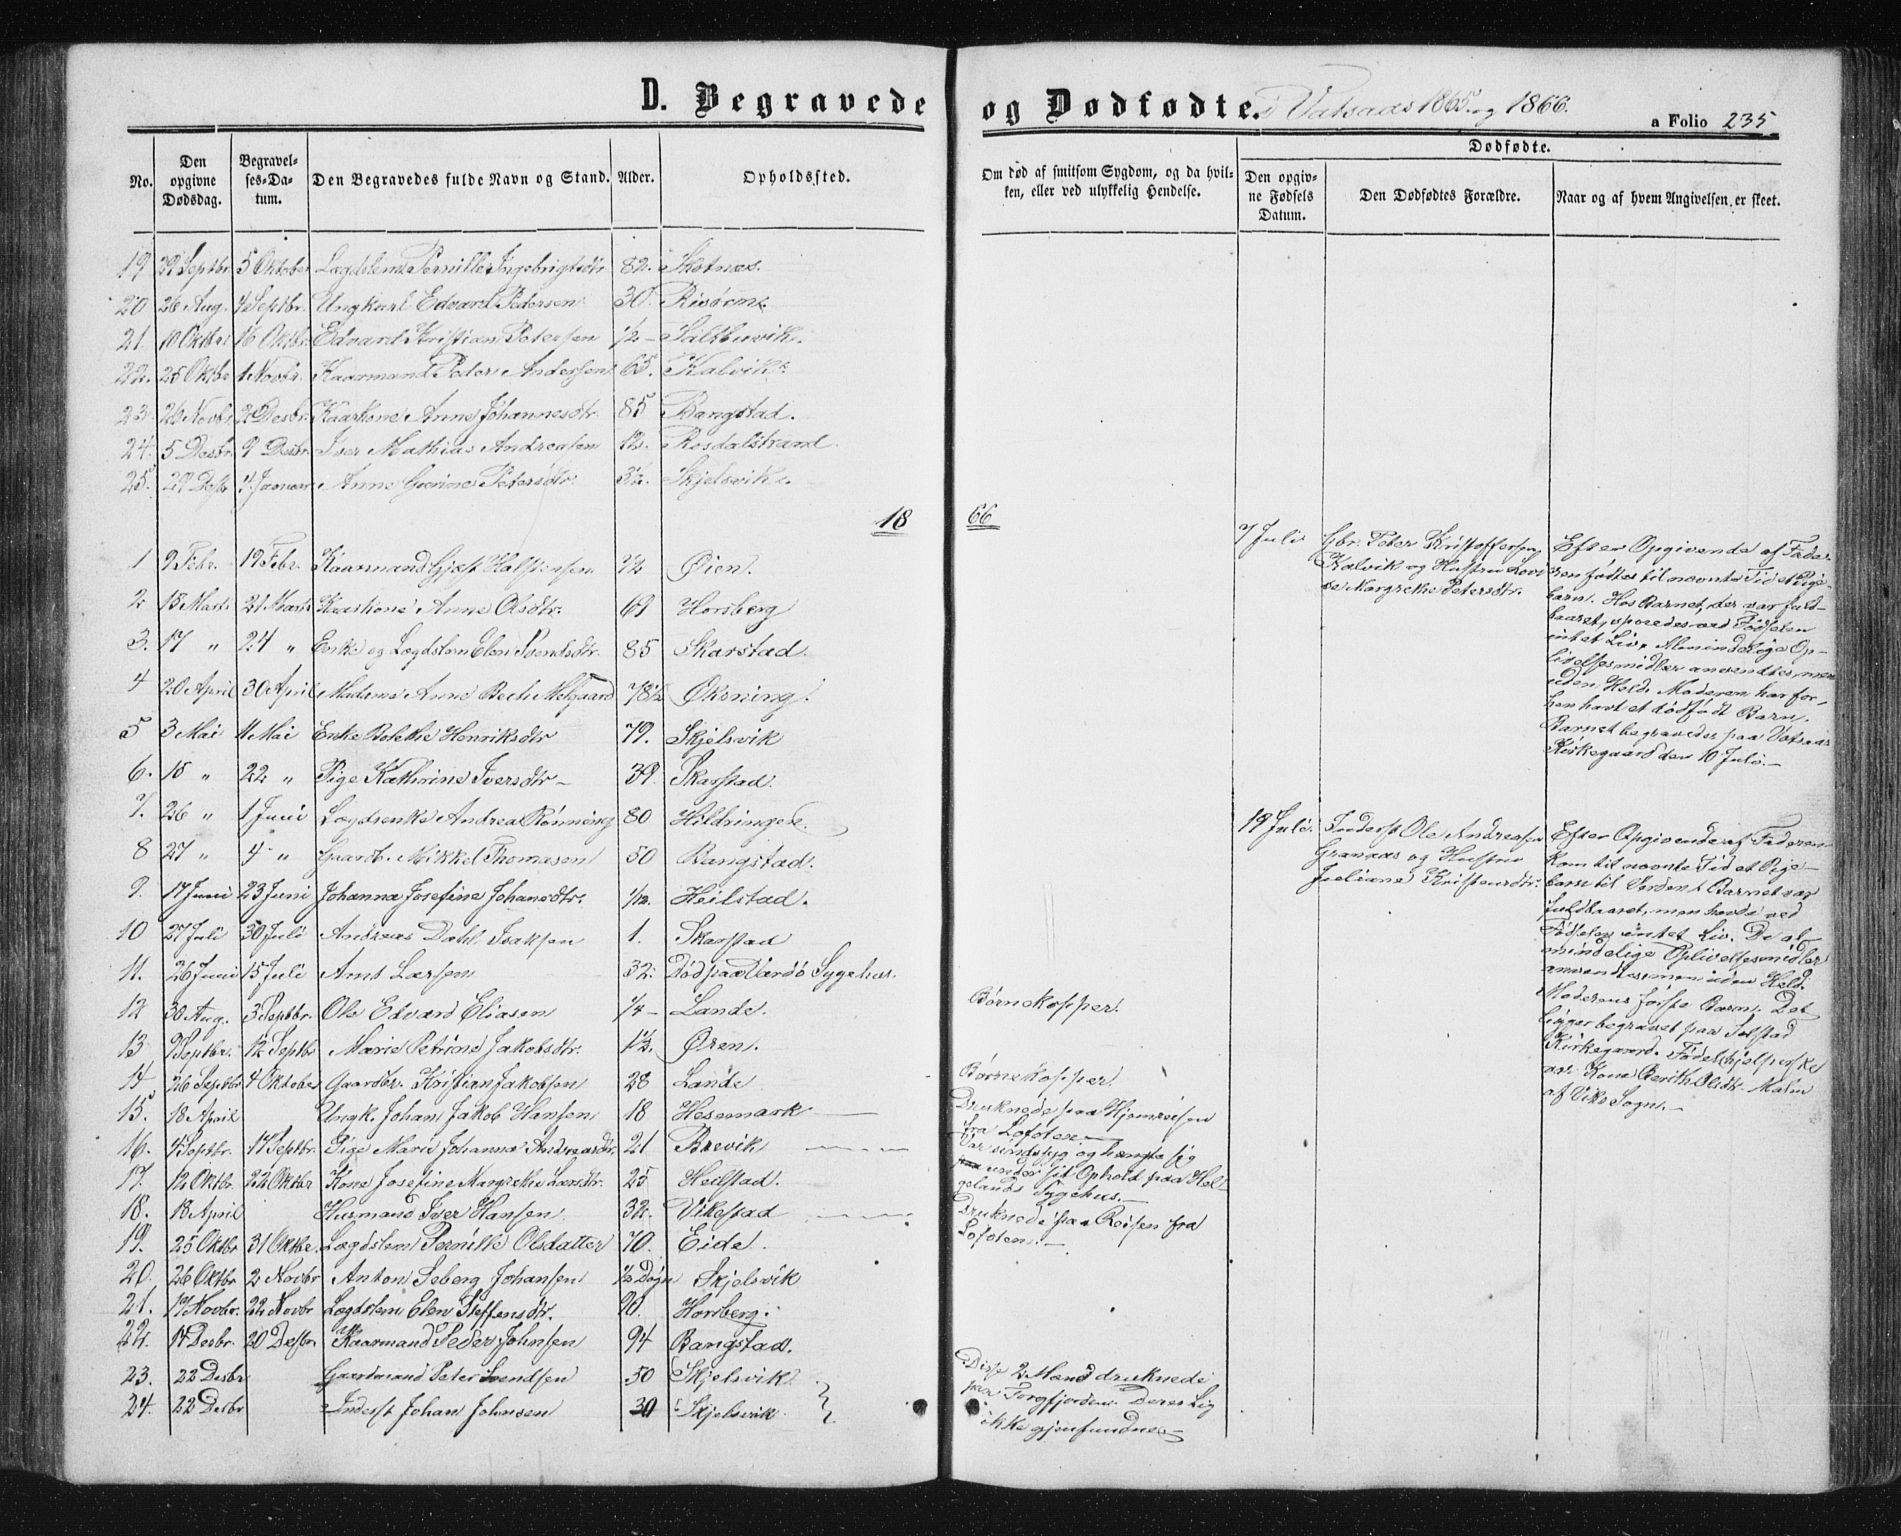 D. Begravede og Dødfødte. i Vatsaas 1865 og 1866.
a Folio 235
No. Den opgivne Dødsdag. Begravelses-Datum. Den Begravedes fulde Navn og Stand. Alder. Opholdssted. Om død af smitsom Sygdom, og da hvilken, eller ved ulykkelig Hendelse. Dødfødte. Den opgivne Fødsels Datum. Den Dødfødtes Forældre. Naar og af hvem Angivelsen er skeet.
19 29 Septbr 5 Oktober Lægdslem Pernille Ingebrigtsdtr 82. Skotnæs.
20 26 Aug. 4 Septbr. Ungkarl Edvard Pedersen 30.
21. 10 Oktbr 16 Oktbr. Edvard Kristian Petersen 1/2 –
22. 25 Oktbr 1 Novbr. Kaarmand Peder Andersen 65. Kalvik.
23. 26 Novbr 2 Desbr. Kaarkone Anne Johannesdtr. 85 Bangstad.
24. 5 Desbr. 9 Desbr. Iver Mathias Andreasen 12. Rosdalstrand
25. 29 Desb Januar Anne Gjerine Petersdtr. 3½. Skjelsvik.
18 66
1 9 Febr. 19 Febr. Kaarmand Halstensen Øien.
2 15 Marts 21 Marts Kaarkone Anne Olsdtr. 69 Horsberg
3. 17 " 24 " Enke og Lægdslem Elen Svendsdtr. 85 Skarstad.
4 20 April 30 April Madame Anne Bech Melgaard 78½ Øksning.
5 3 Mai 11 Mai Enke Henriksdtr 79. Skjelsvik
6. 15 " 22 " Pige Kathrine Iversdtr – 39. Skarstad.
7. 26 " 1 Juni Lægdsenke Andrea Rønning 80 Hildringen.
8 27 " 4 " Gaardb. Mikkel Thomasen 50 Bangstad.
9. 17 Juni 23 Juni Johanna Josefine Johansdtr. 1/12. Heilstad.
10 27 Juli 30 Juli Andreas Dahl Isaksen 1. Skarstad
11. 26 Juni 15 Juli Arnt Larsen 32. Død paa Vardø Sygehus.
12 30 Aug. 3 Septbr. Ole Edvard Eliasen 1/4 – Lande. Børnekopper.
13 9 Septbr. 12 Septbr Marie Petrine Jakobsdtr. 1½. Øren.
14 26 Septbr 4 Oktober Gaardbr. Kristian Jakobsen 28 Lande Børnekopper.
15. 18 April Ungk. Johan Jakob Hansen 18 Hesemark – Druknede paa Hjemreisen
fra Lofoten. –
16. 4 Septbr. 17 Septbr. Pige Marie Johanna Andreasdtr. 21 Brevik Var sindssyg og hængte sig
under sit Ophold paa Hel-
gelands Sygehus. –
17. 12 Oktbr 22 Oktbr Kone Josefine Margrethe Larsdtr. 25 Heilstad.
18. 18 April Husmand Iver Hansen 32. Vikestad Druknede paa Reisen fra
Lofoten. –
19. 25 Oktbr 31 Oktbr. Lægdslem Pernille Olsdatter 70. Eide.
20. 26 Oktbr 2 Novbr Anton Seberg Johansen ½ Døgn Skjelsvik
21. 17 Novbr. 22 Novbr Lægdslem Elen Steffensdtr. 90. Horsberg.
22. 14 Desbr. 20 Desbr. Kaarmand Peder Johnsen 94 Bangstad.
23. 22 Desbr Gaardmand Peter Svendsen 50 Skjelsvik Disse 2 Mænd druknede
paa Torgfjorden. Deres Lig
ikke gjenfundne. –
24. 22 Desbr Inderst Johan Johnsen 30 Skjelsvik
7 Juli Gbr. Peter Kristoffersen
Kalvik og Hustru Lovi
se Margrethe Petersdtr.
Efter Opgivende af Fade-
ren fødtes til nævnte Tid et Pige
barn. Hos Barnet, der var fuld-
baaret, sporedes ved Fødselen
intet Liv. Almindelige Op-
livelsesmidler anvendtes, men
uden Held. Moderen har for-
hen havt et dødfødt Barn.
Barnet begravedes paa Vatsaas
Kirkegaard den 10 Juli. –
19 Juli. Inderst Ole Andreasen
Granaas og Hustru
Juliane Kristensdtr.
Efter Opgivende af Faderen
kom til nævnte Tid et Pige-
barn til Verden. Barnet var
fuldbaaret, men havde ved
Fødselen intet Liv. De al-
mindelige Oplivelsesmidler
anvendtes men uden Held.
Moderens første Barn. Det
ligger begravet paa Solstad
Kirkegaard. Fødselshjelperske
var Kone Berith Olsdtr. Malm
af Viks Sogn. –